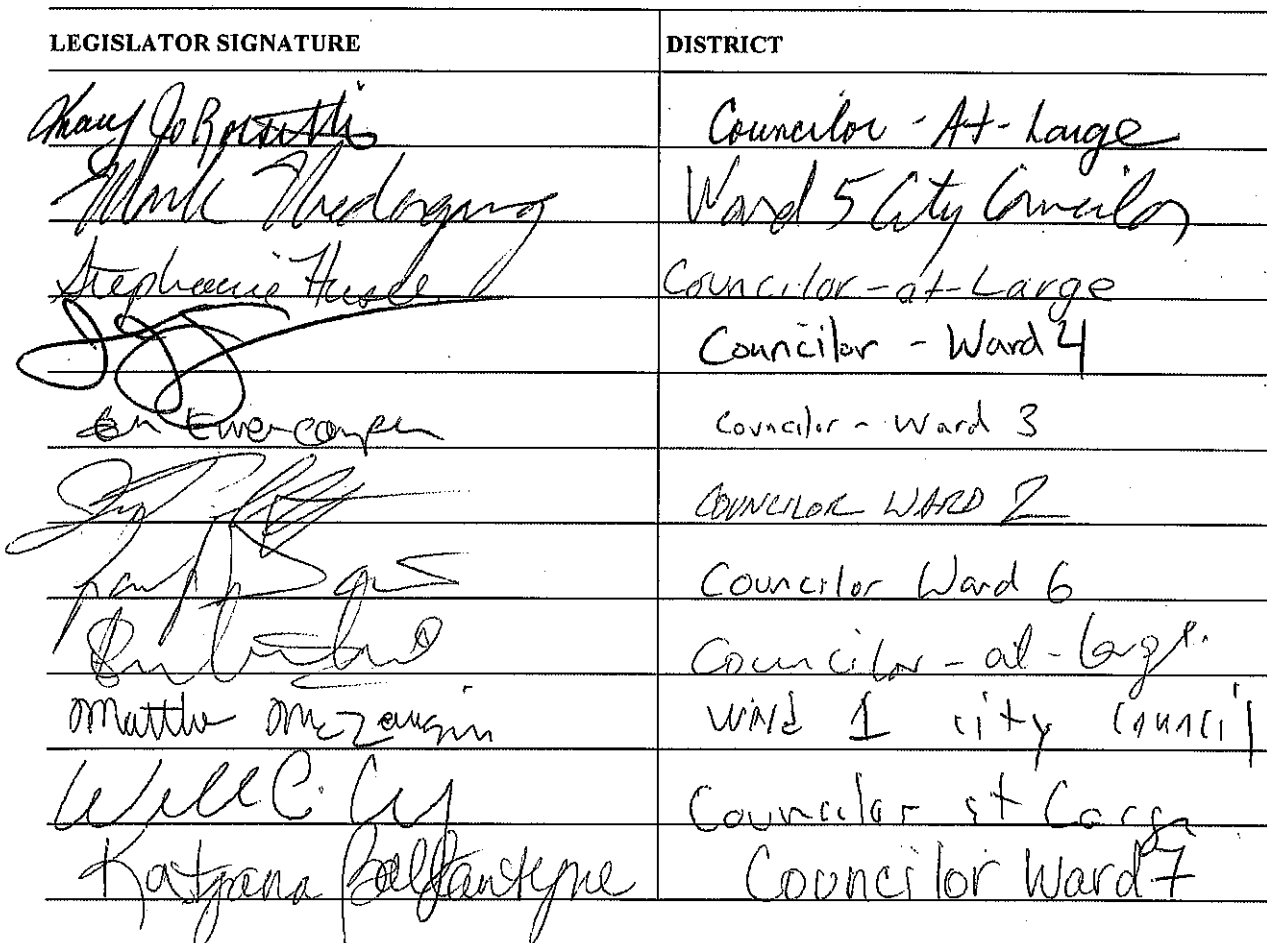 LEGISLATOR SIGNATURE DISTRICT
Mary Jo Rossetti Councilor - At - Large
Mark Niedergang Ward 5 City Councilor
Stephanie Councilor - at - Large
Councilor - Ward 4
Ben Ewen-Campen Councilor - Ward 3
COUNCILOR WARD 2
Councilor Ward 6
Councilor - at - large
Matthew McLaughlin Ward 1 city council
Will C. Councilor at Large
Katjana Ballantyne Councilor Ward 7